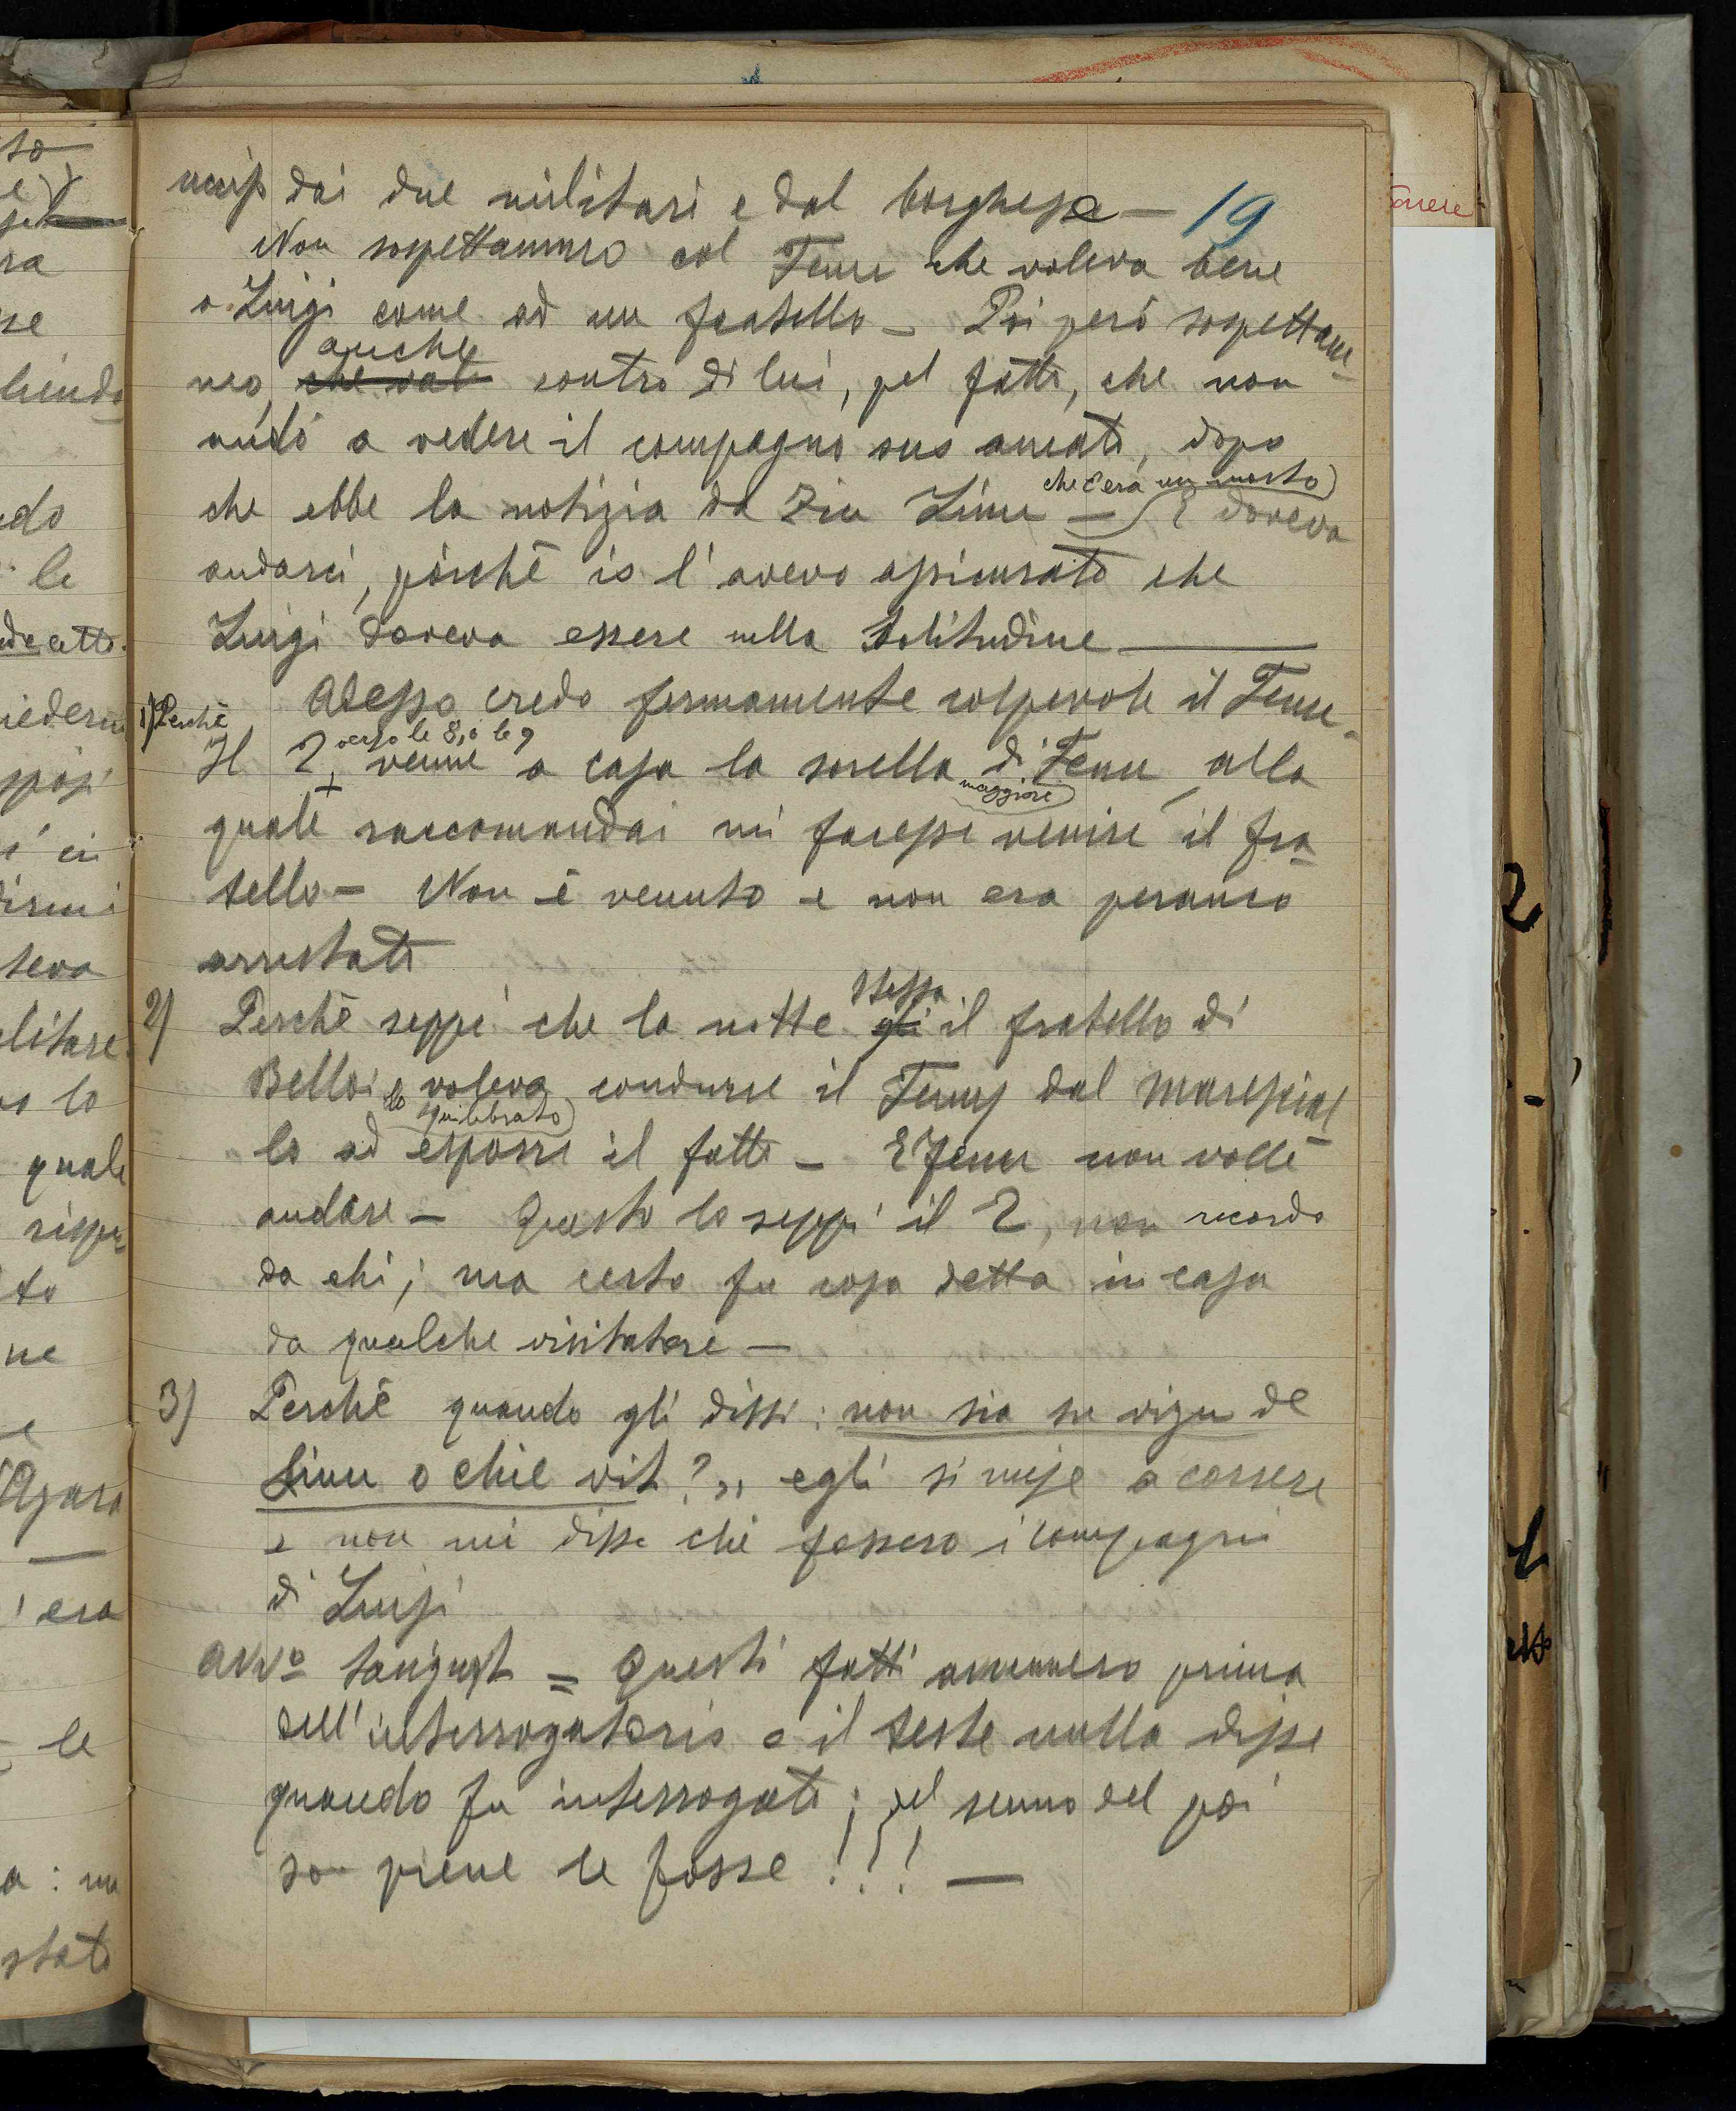 uccisi dai due militari e dal borghese — 19
Non sospettammo col Fenu che voleva bene
a Luigi come ad un fratello — Poi però sospettam-
mo, anche contro di lui, pel fatto, che non
andò a vedere il compagno suo amato, dopo
che ebbe la notizia da Ziu Linu — (che c'era un morto) E doveva
andarci, poichè io l'avevo assicurato che
Luigi doveva essere nella solitudine —
Adesso credo fermamente colpevole il Fenu.
1) Perchè
Il 2, verso le 8, o le 9 venne a casa la sorella maggiore di Fenu, alla
quale raccomandai mi facesse venire il fra-
tello — Non è venuto e non era peranco
arrestato
2) Perchè seppi che la notte stessa gli il fratello di
Belloi (lo squilibrato) voleva condurre il Fenu dal marescial
lo ad esporre il fatto — E Fenu non volle
andare — Questo lo seppi il 2, non ricordo
da chi; ma certo fu cosa detta in casa
da qualche visitatore —
3) Perchè quando gli dissi: non sia su vizu de
Linu o chie vit?" egli si mise a correre
e non mi disse chi fossero i compagni
di Luigi
Avvo Sanjust = Questi fatti avvennero prima
dell'interrogatorio e il teste nulla disse
quando fu interrogato; del senno del poi
son piene le fosse!!! —